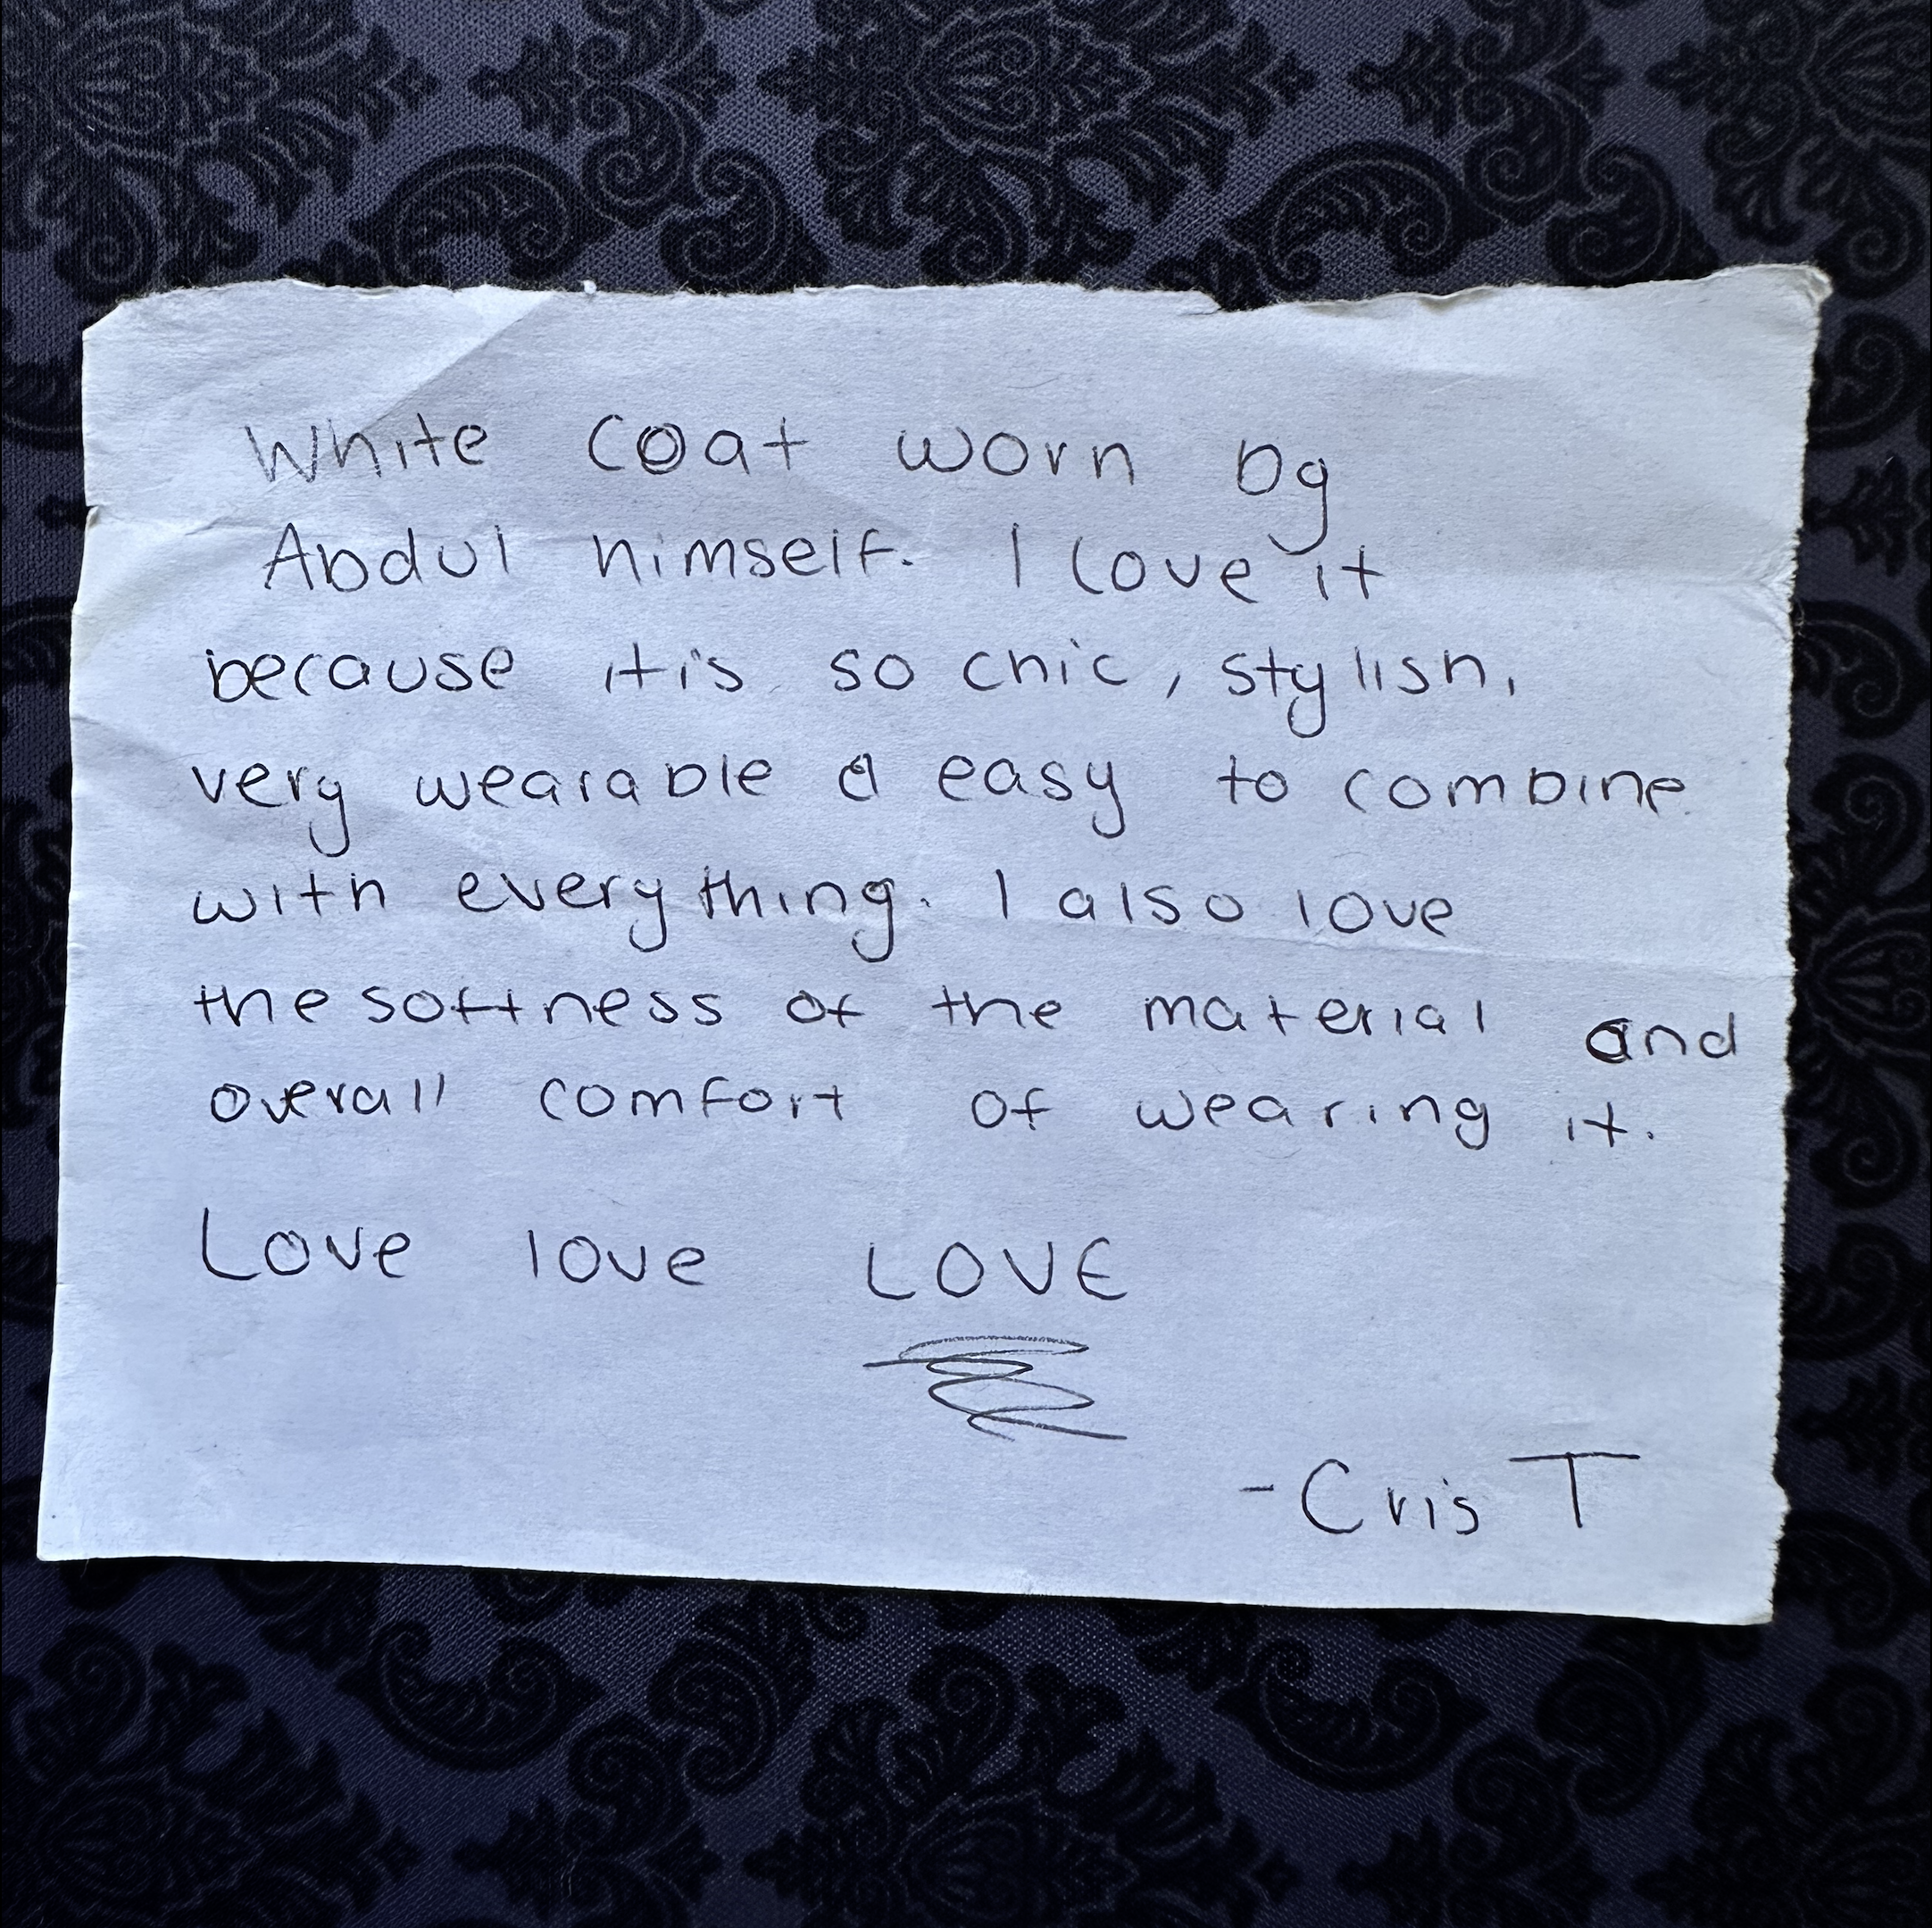 White coat worn by
Abdul himself. I love it
because it is so chic, stylish,
very wearable & easy to combine
with everything. I also love
the softness of the material and
overall comfort of wearing it.
Love love LOVE
-Cris T